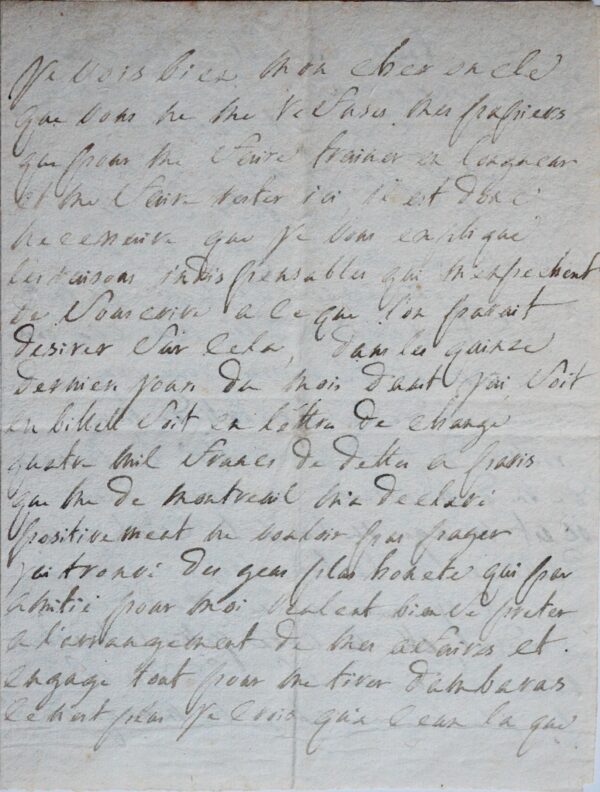 je vois bien mon cher oncle
que vous ne me refuses mes papiers
que pour me faire trainer en longueur
et me faire rester ici il est donc
necessaire que je vous explique
les raisons indispensables qui m'enpechent
de souscrire a ce que l'on parait
desirer sur cela, dans les quinze
dernier jours du mois d'aout j'ai soit
en billets soit en lettre de change
quatre mil francs de dettes a paris
que me de montreuil m'a declaré
positivement ne vouloir pas payer
j'ai trouvé des gens plus honete qui par
amitié pour moi veulent bien se preter
a l'arrangement de mes afaires et
engage tout pour me tirer d'ambaras
ce n'est plus je crois qu'a ceux la que